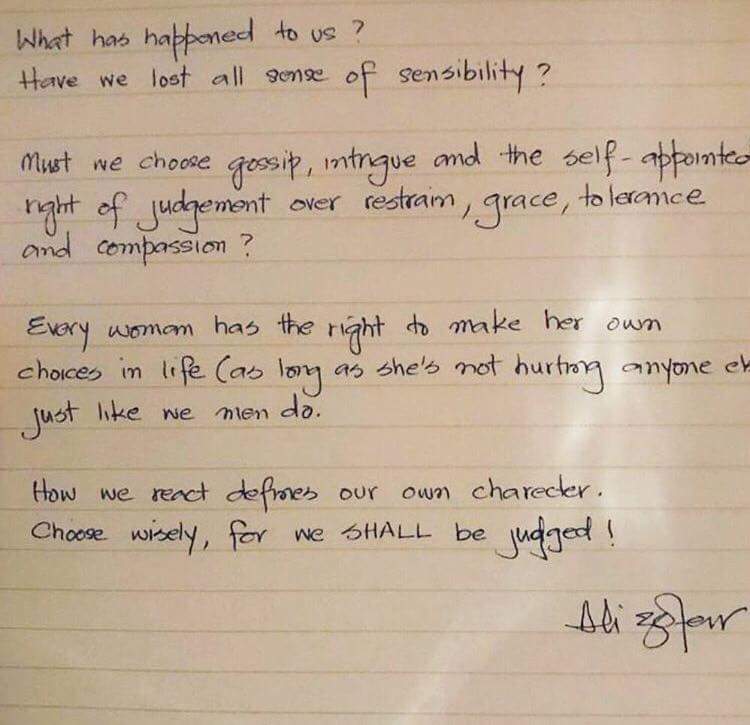 What has happened to us ?
Have we lost all sense of sensibility ?
Must we choose gossip, intrigue and the self-appointed
right of judgement over restrain, grace, tolerance
and compassion ?
Every woman has the right to make her own
choices in life (as long as she's not hurting anyone
just like we men do.
How we react defines our own charecter.
Choose wisely, for we SHALL be judged !
Ali Zafar